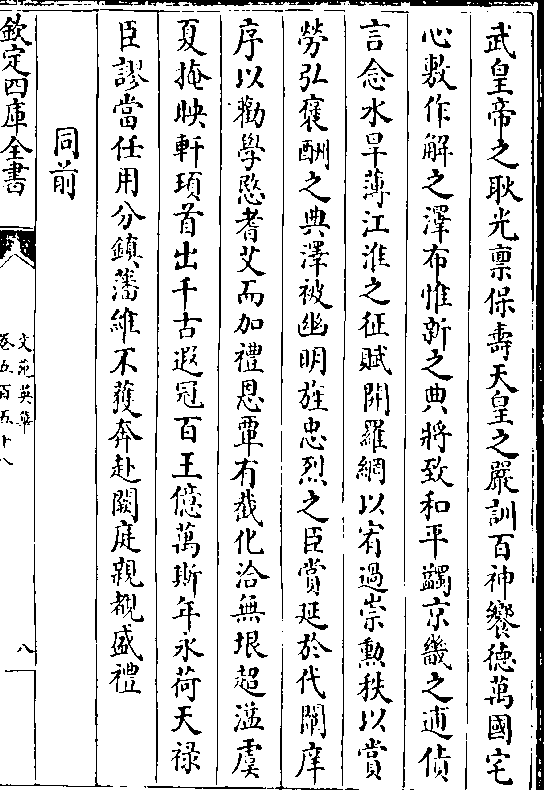 武皇帝之耿光禀保壽天皇之嚴訓百神饗德萬國宅
心敷作解之澤布惟新之典將致和平蠲京畿之逋債
言念水旱薄江淮之征賦開羅網以宥過崇勲秩以賞
勞弘褒酬之典澤被幽明旌忠烈之臣賞延於代闡庠
序以勸學愍耆艾而加禮恩覃有截化洽無垠超溢虞
夏掩映軒頊首出千古遐冠百王億萬斯年永荷天禄
臣謬當任用分鎮藩維不獲奔赴闕庭親覩盛禮
同前
欽定四庫全書
文苑英華
卷五百五十八
八